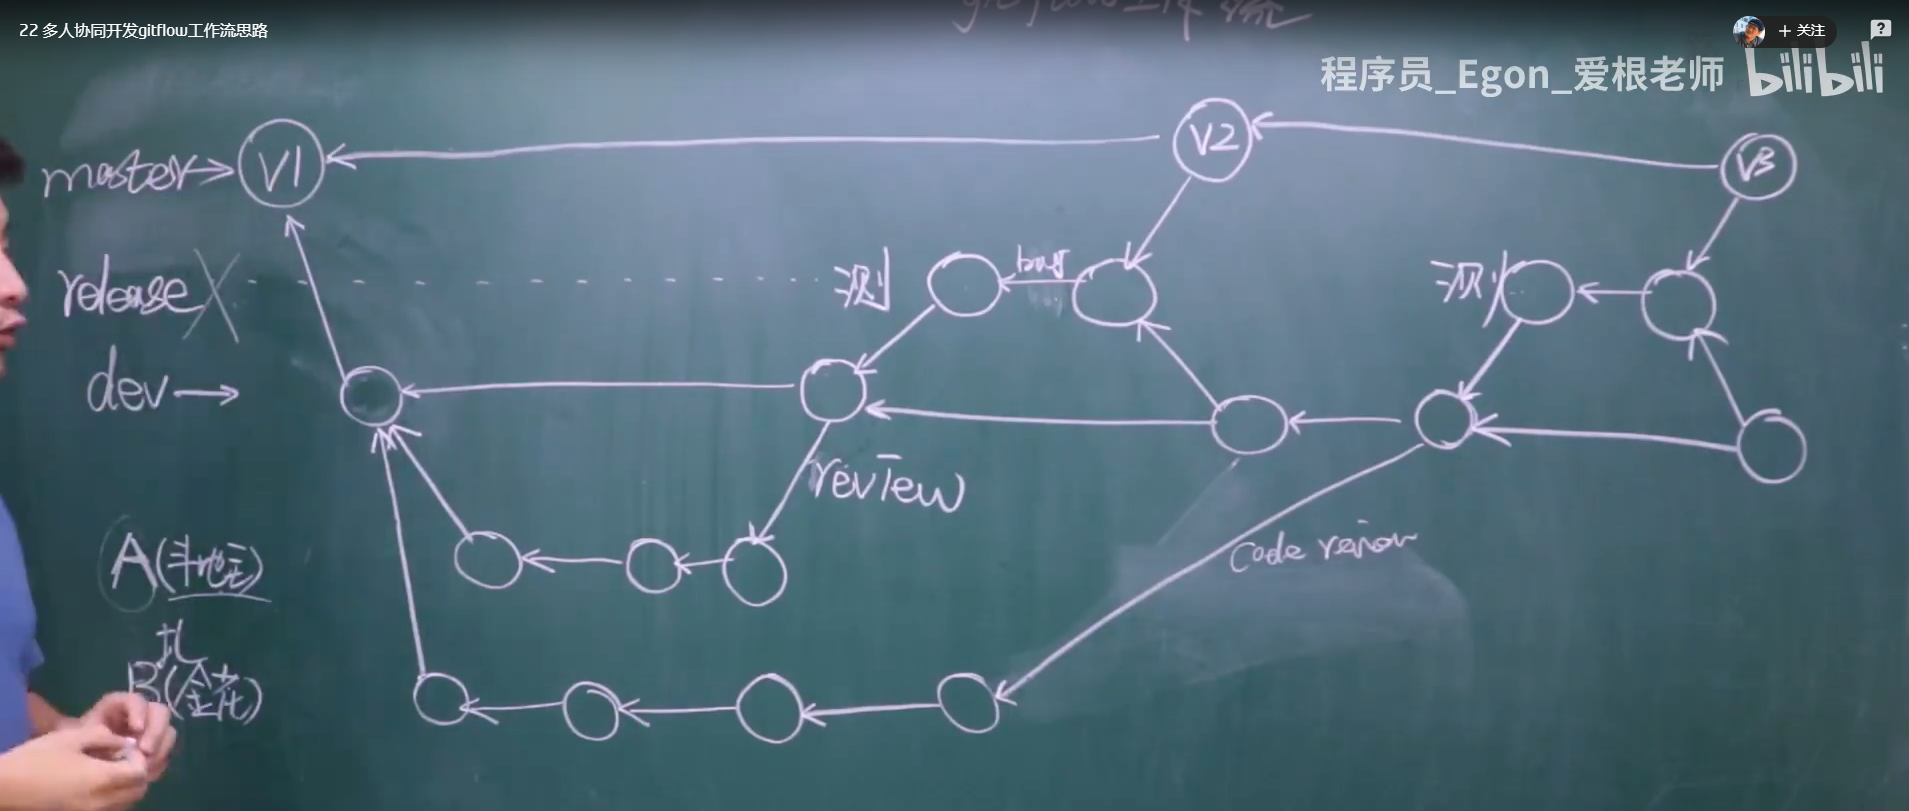 22 多人协同开发gitflow工作流思路
+ 关注
程序员_Egon_爱根老师 bilibili
gitflow工作流
master V1 V2 V3
release 测 bug 测
dev
review
A(斗地主)
code review
B(金花)